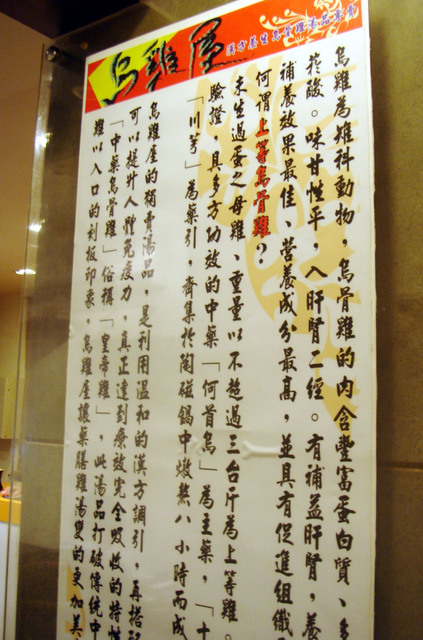 烏雞屋
漢方養生烏骨雞湯品專賣
烏雞為雉科動物，烏骨雞的肉含豐富蛋白質、多
菸酸。味甘性平，入肝腎二經。有補益肝腎，養
補養效果最佳、營養成分最高，並具有促進組織
何謂上等烏骨雞？
未生過蛋之母雞、重量以不超過三台斤為上等雞。
驗證，具多方功效的中藥「何首烏」為主藥，「十
「川芎」為藥引，齊集於陶磁鍋中燉熬八小時而成
烏雞屋的獨賣湯品，是利用溫和的漢方調引，再搭配
可以提升人體免疫力，真正達到療效完全吸收的特性
「中藥烏骨雞」俗稱「皇帝雞」，此湯品打破傳統中
難以入口的刻板印象，烏雞屋讓藥膳雞湯變的更加美